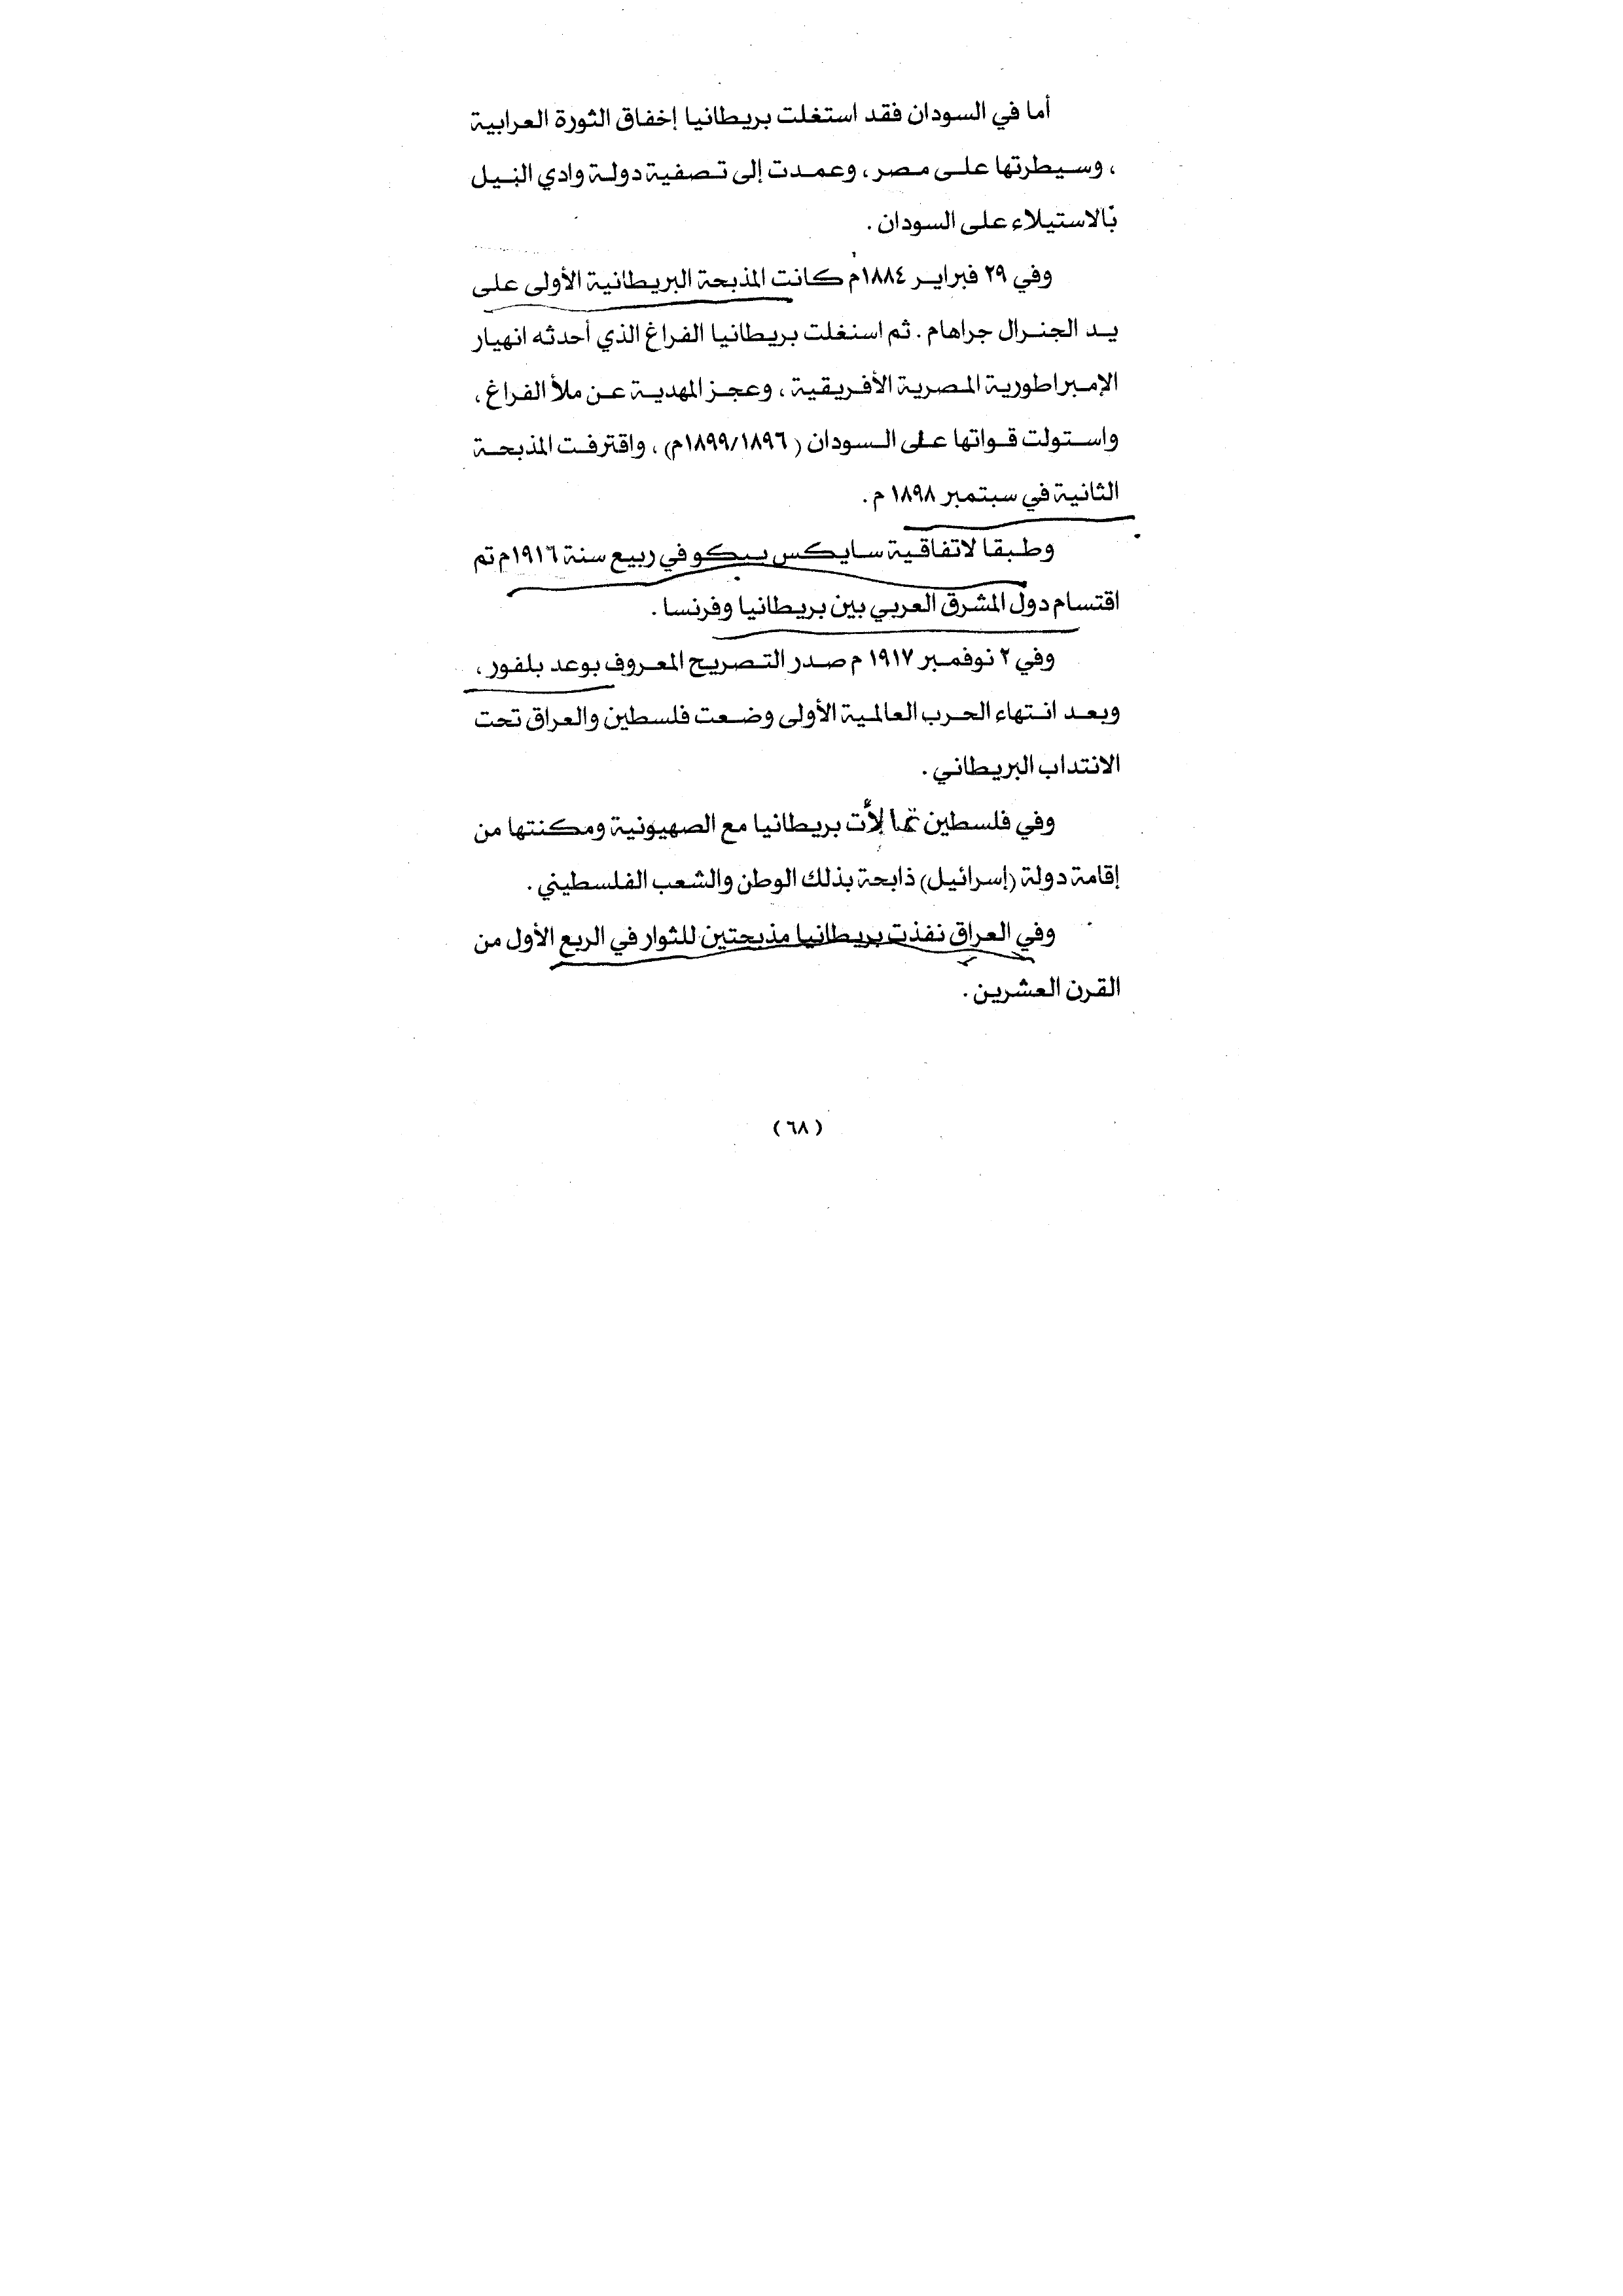 أما في السودان فقد استغلت بريطانيا إخفاق الثورة العرابية
، وسيطرتها على مصر ، وعمدت إلى تصفية دولة وادي النيل
بالاستيلاء على السودان .
وفي ٢٩ فبراير ١٨٨٤م كانت المذبحة البريطانية الأولى على
يد الجنرال جراهام . ثم استغلت بريطانيا الفراغ الذي أحدثه انهيار
الإمبراطورية المصرية الأفريقية ، وعجز المهدية عن ملأ الفراغ ،
واستولت قواتها على السودان ( ١٨٩٩/١٨٩٦م) ، واقترفت المذبحة
الثانية في سبتمبر ١٨٩٨ م .
وطبقا لاتفاقية سايكس بيكو في ربيع سنة ١٩١٦م تم
اقتسام دول المشرق العربي بين بريطانيا وفرنسا .
وفي ٢ نوفمبر ١٩١٧ م صدر التصريح المعروف بوعد بلفور ،
وبعد انتهاء الحرب العالمية الأولى وضعت فلسطين والعراق تحت
الانتداب البريطاني .
وفي فلسطين تمالأت بريطانيا مع الصهيونية ومكنتها من
إقامة دولة (إسرائيل) ذابحة بذلك الوطن والشعب الفلسطيني .
وفي العراق نفذت بريطانيا مذبحتين للثوار في الربع الأول من
القرن العشرين .
(٦٨)